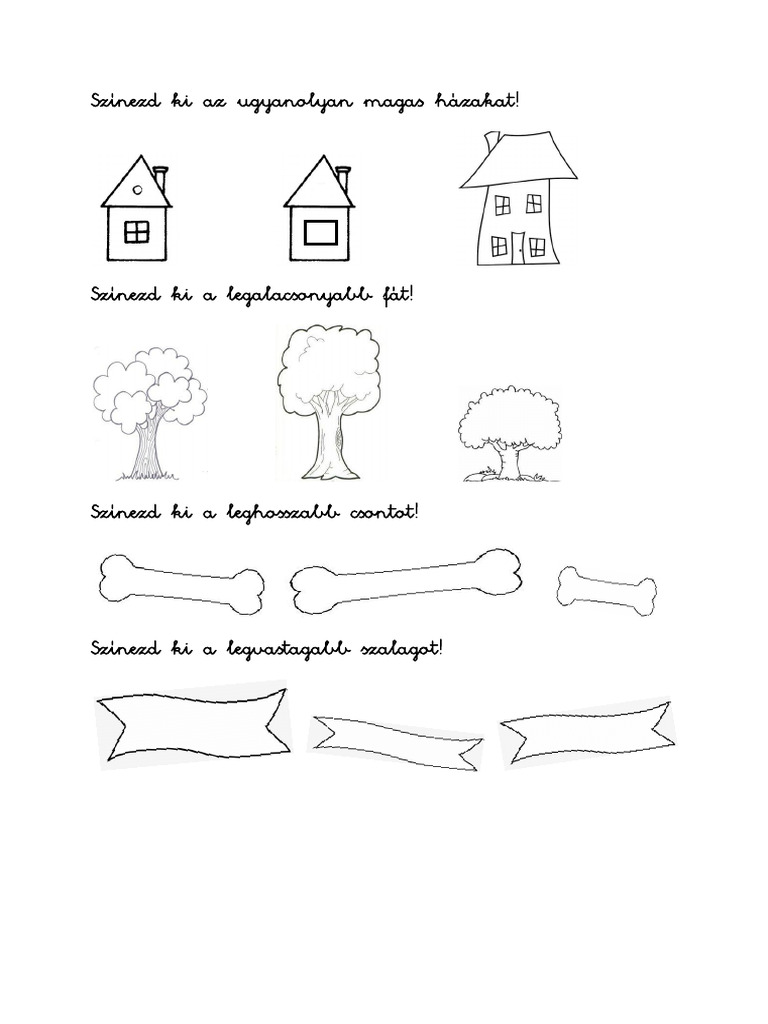 Színezd ki az ugyanolyan magas házakat!
Színezd ki a legalacsonyabb fát!
Színezd ki a leghosszabb csontot!
Színezd ki a legvastagabb szalagot!